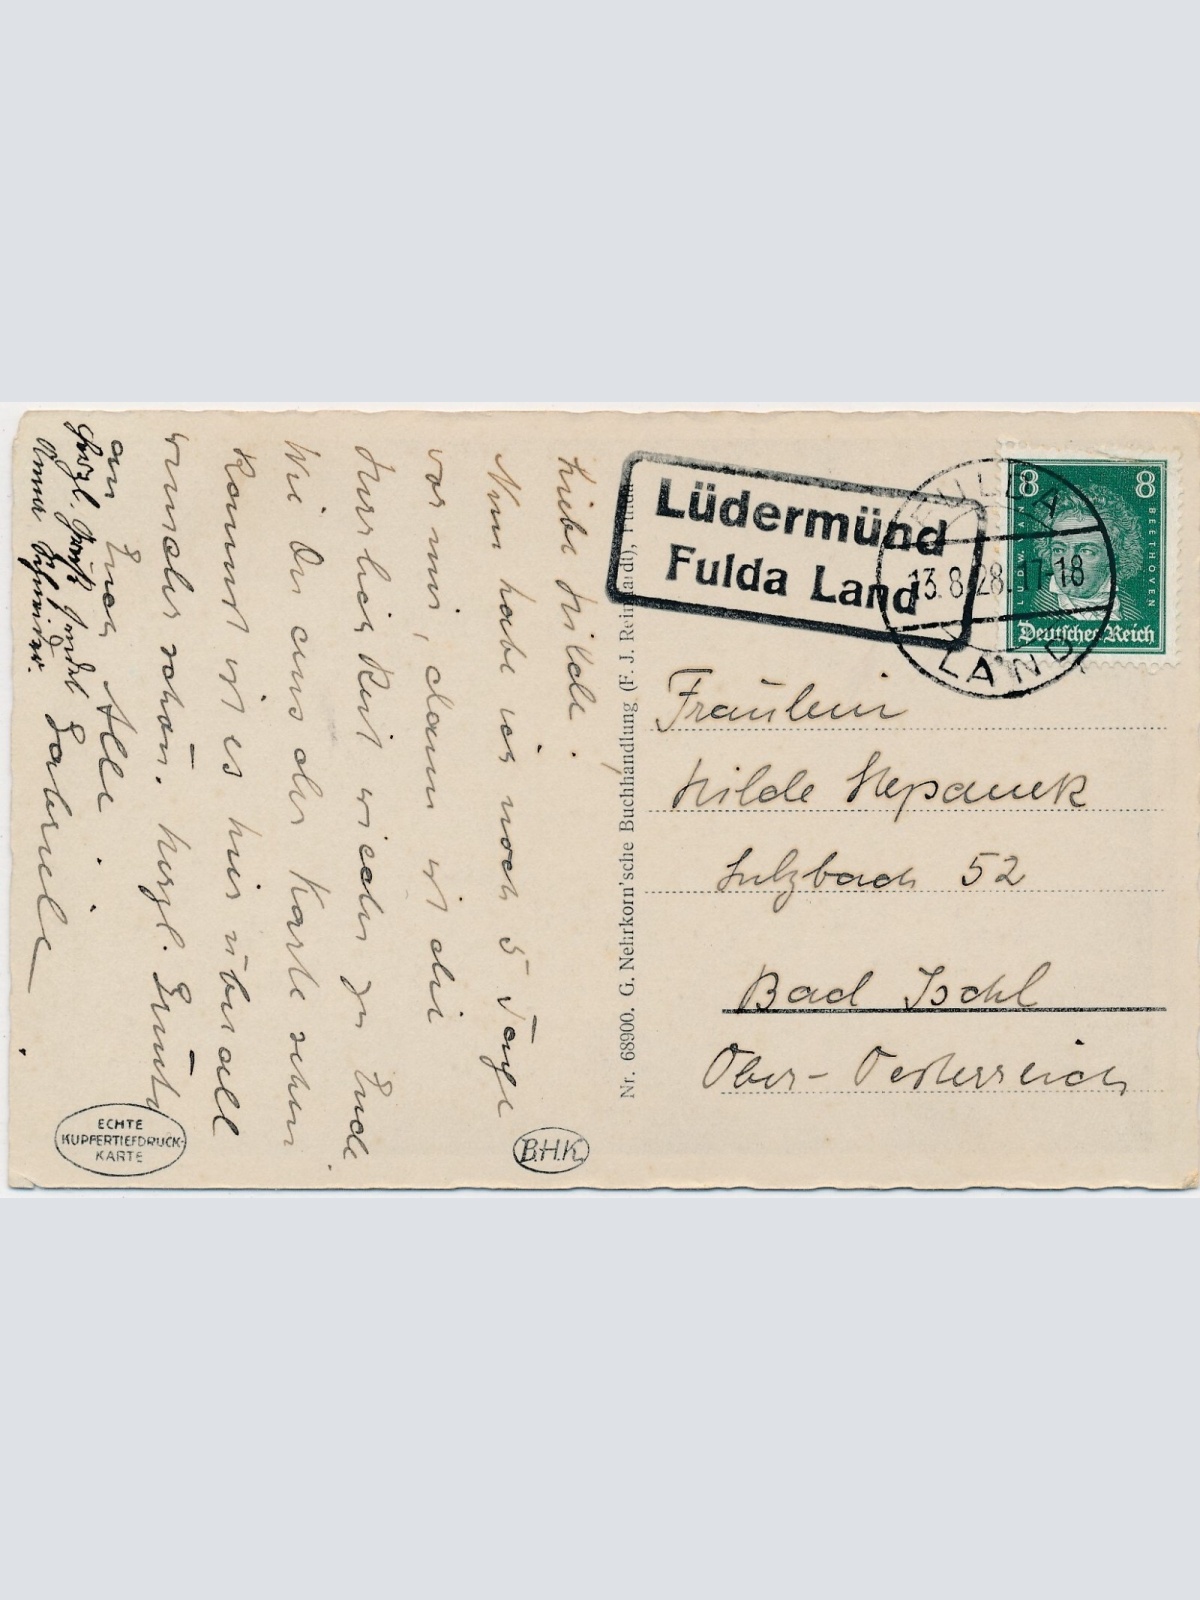 Liebe Hilde.
Nun habe ich noch 5 Tage
vor mir, dann ist die
herrliche Zeit wieder zu Ende.
Wie Du aus der Karte sehen
kannst ist es hier überall
wunderschön. Herzl. Grüße
an Euch Alle.
Gabriele
Herzl. Grüße sendet
Anna Schneider.
Lüdermünd
Fulda Land
FULDA
13.8.28.17-18
LAND
8 8
LUDW. VAN BEETHOVEN
Deutsches Reich
Fräulein
Hilde Stepanek
Sulzbach 52
Bad Ischl
Ober-Oesterreich
Nr. 68900. G. Nehrkorn'sche Buchhandlung (F. J. Reinhardt), Fulda
ECHTE
KUPFERTIEFDRUCK-
KARTE
B.H.K.